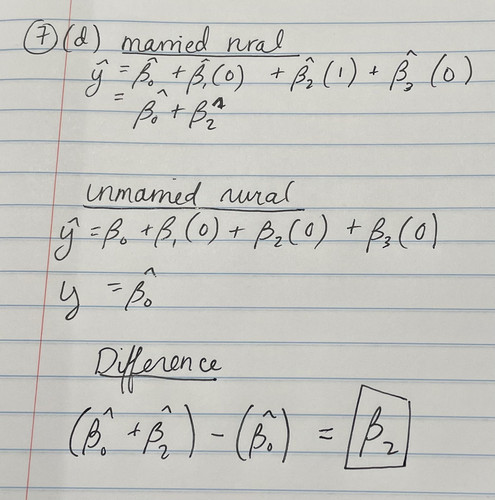 ⑦ (d) married rural
ŷ = β̂₀ + β̂₁(0) + β̂₂(1) + β̂₃(0)
= β̂₀ + β̂₂
unmarried rural
ŷ = β₀ + β₁(0) + β₂(0) + β₃(0)
y = β̂₀
Difference
(β̂₀ + β̂₂) - (β̂₀) = β₂